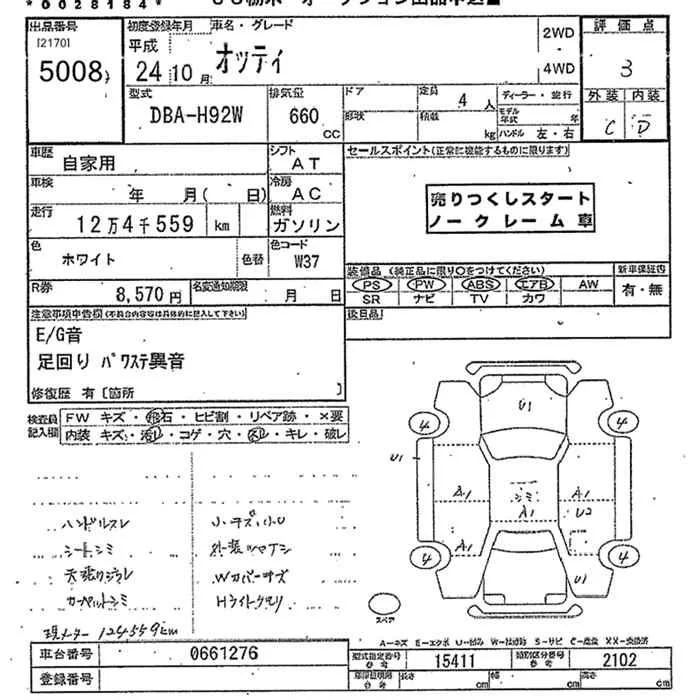 *0028184*
出品番号 初度登録年月 車名・グレード 2WD 評価点
[2170] 平成 オッティ
5008 24年10月 4WD 3
型式 排気量 ドア 定員 ディーラー・並行 外装 内装
DBA-H92W 660 4人 C D
cc 形状 積載 kg モデル年式 年 ハンドル 左・右
車歴 自家用 シフト AT セールスポイント(正常に機能するものに限ります)
車検 年 月( 日) 冷房 AC
売りつくしスタート
ノークレーム車
走行 12万4千559 km 燃料 ガソリン
色 ホワイト 色替 色コード W37
装備品(純正品に限り○をつけてください) 新車保証書
PS PW ABS エアB AW 有・無
SR ナビ TV カワ
R券 8,570円 名変通知期限 月 日
注意事項申告欄(不具合内容等は具体的に記入して下さい) 後日品
E/G音
足回り パワステ異音
修復歴 有〔箇所 〕
検査員記入欄 FW キズ・飛石・ヒビ割・リペア跡・×要
内装 キズ・汚レ・コゲ・穴・スレ・キレ・破レ
U1
4 4
U1
A1 シミ A1
A1 U2
A1
4 4
U1
ハンドルスレ 小キズ・小U
シートシミ 外装ツヤナシ
Wカバーキズ
カーペットシミ Hライトクモリ
スペア
現メーター 124559km
A-キズ E-エクボ U-凹み W-補修跡 S-サビ C-腐食 XX-交換済
車台番号 0661276 型式指定番号 参考 15411 類別区分番号 参考 2102
登録番号 長さ cm 幅 cm 高さ cm